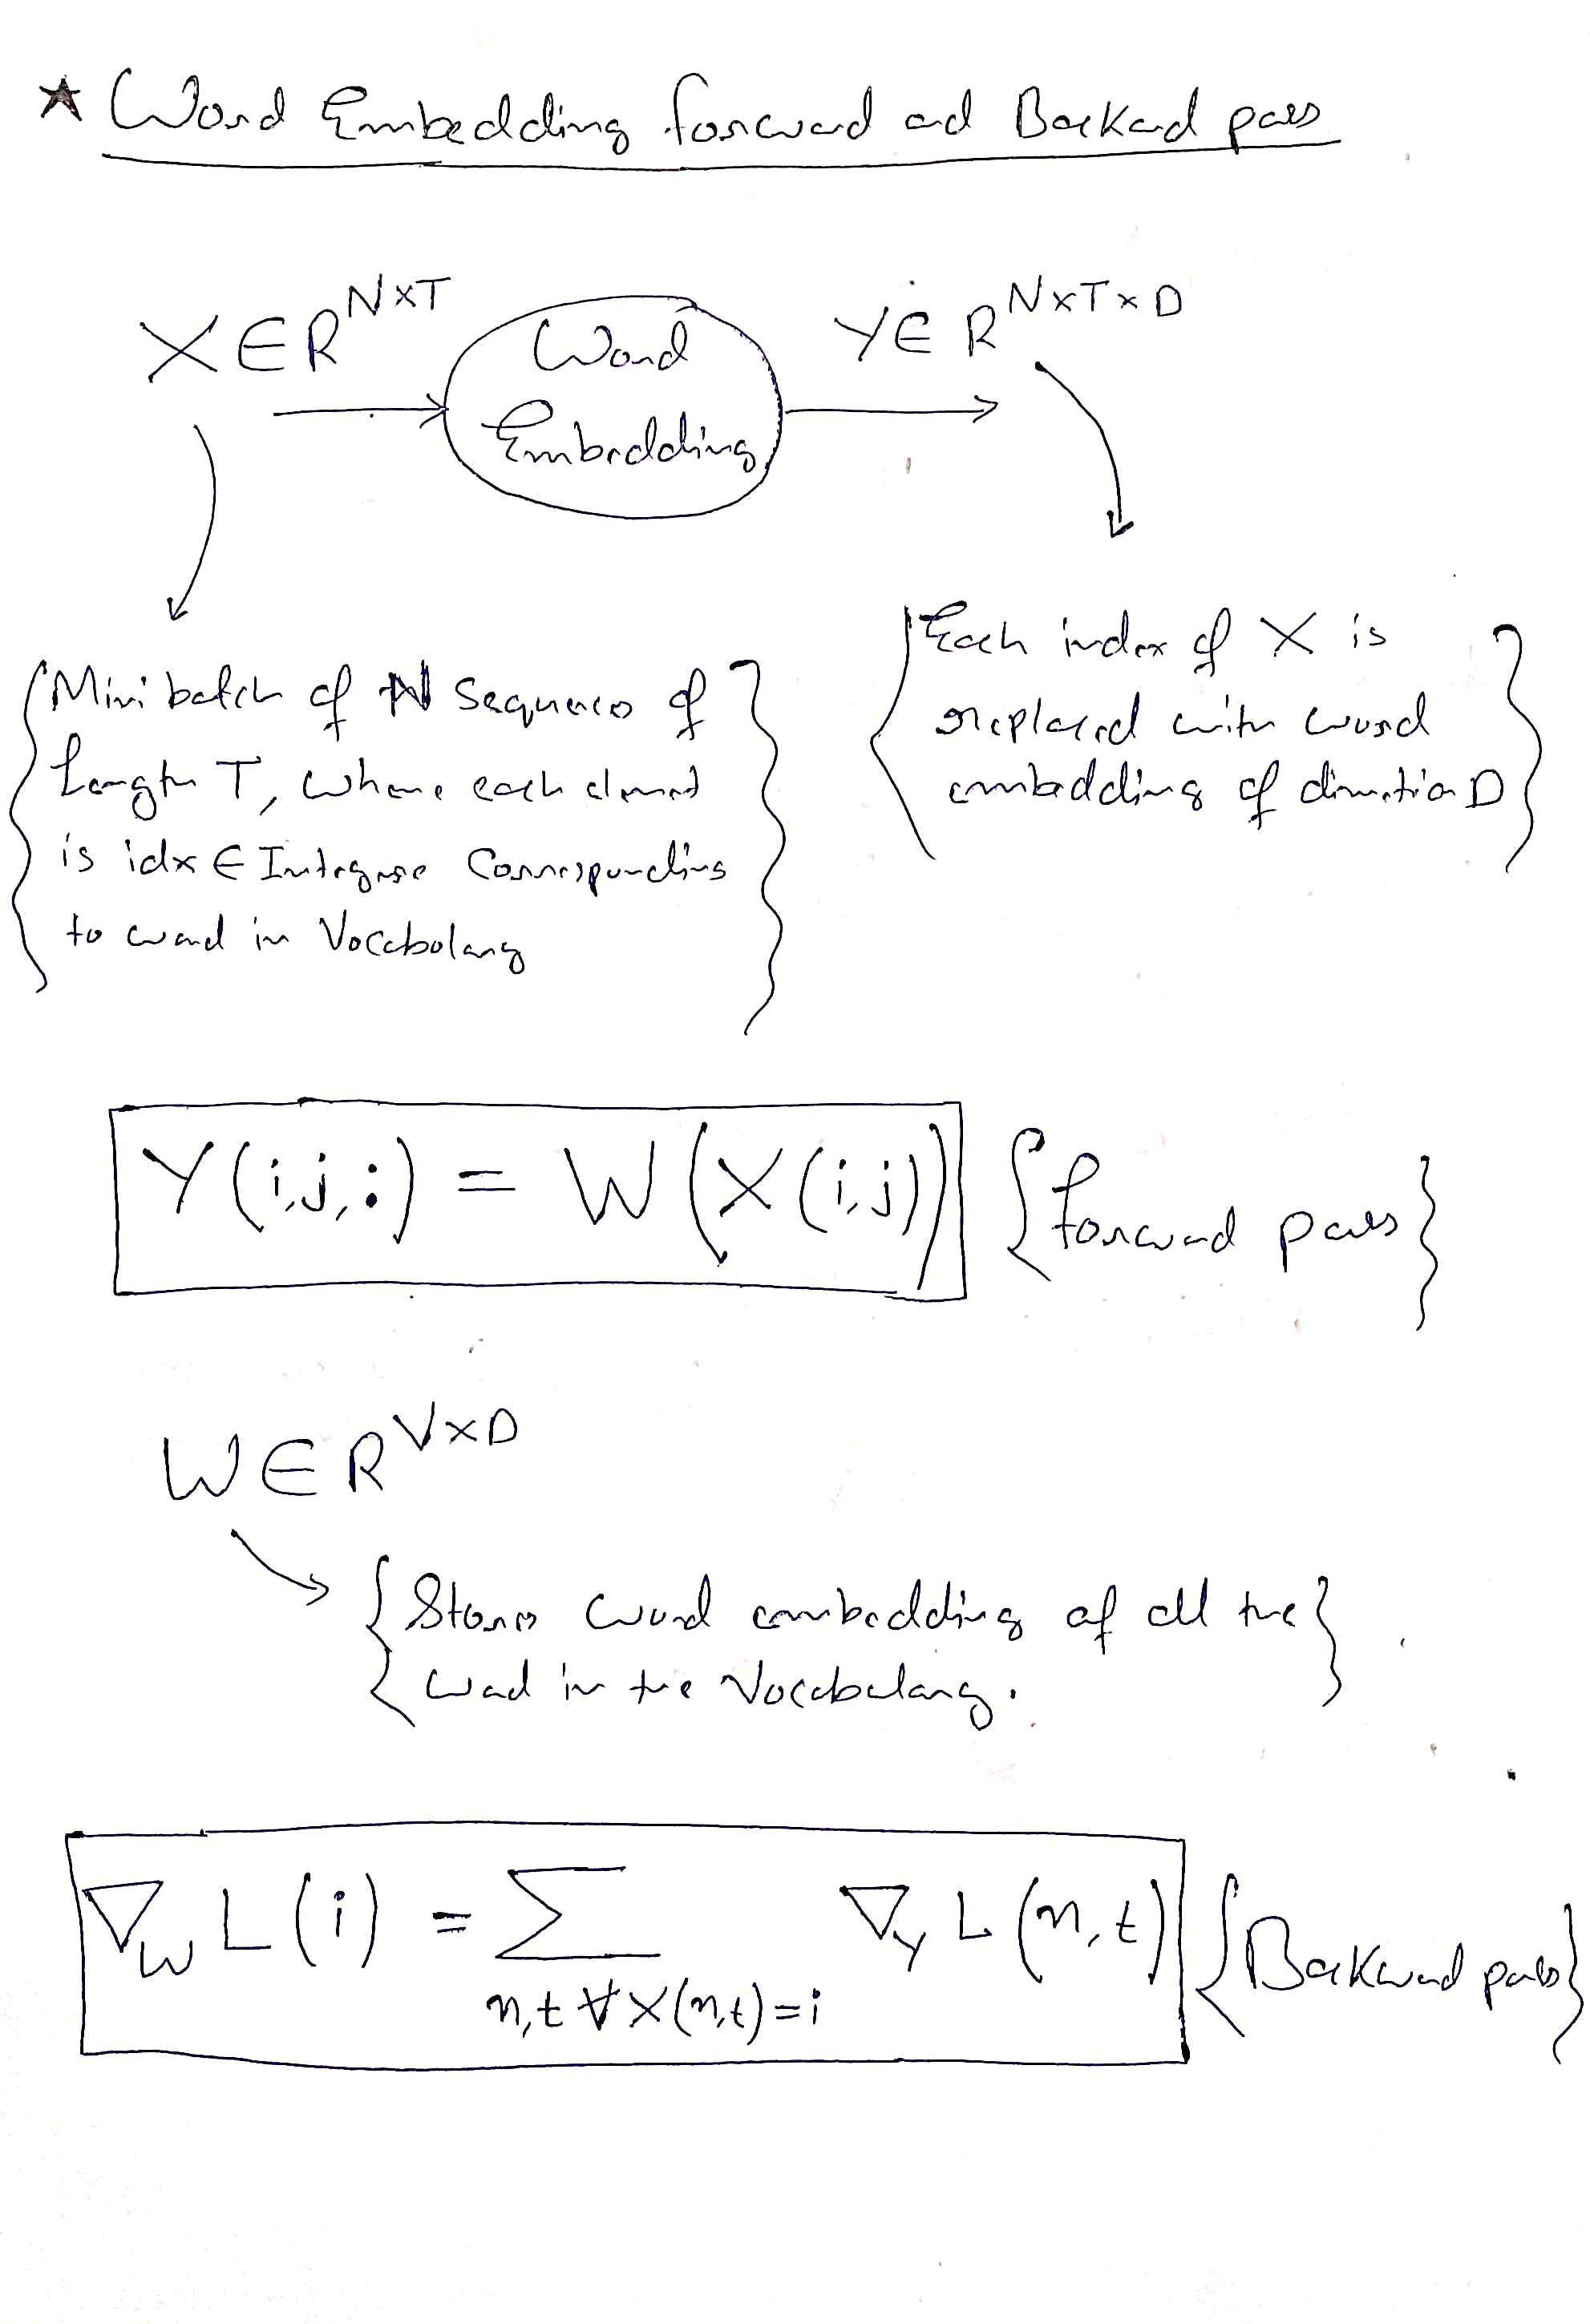 ★ Word Embedding forward and Backward pass
X ∈ R^{N×T}
Word
Embedding
Y ∈ R^{N×T×D}
{Mini batch of N Sequences of
Length T, where each element
is idx ∈ Integers Corresponding
to word in Vocabulary}
{Each index of X is
replaced with word
embedding of dimention D}
Y(i,j,:) = W(X(i,j)) {forward pass}
W ∈ R^{V×D}
{Stores word embedding of all the
word in the Vocabulary.}
∇_W L(i) = Σ_{n,t ∀ X(n,t)=i} ∇_Y L(n,t) {Backward pass}